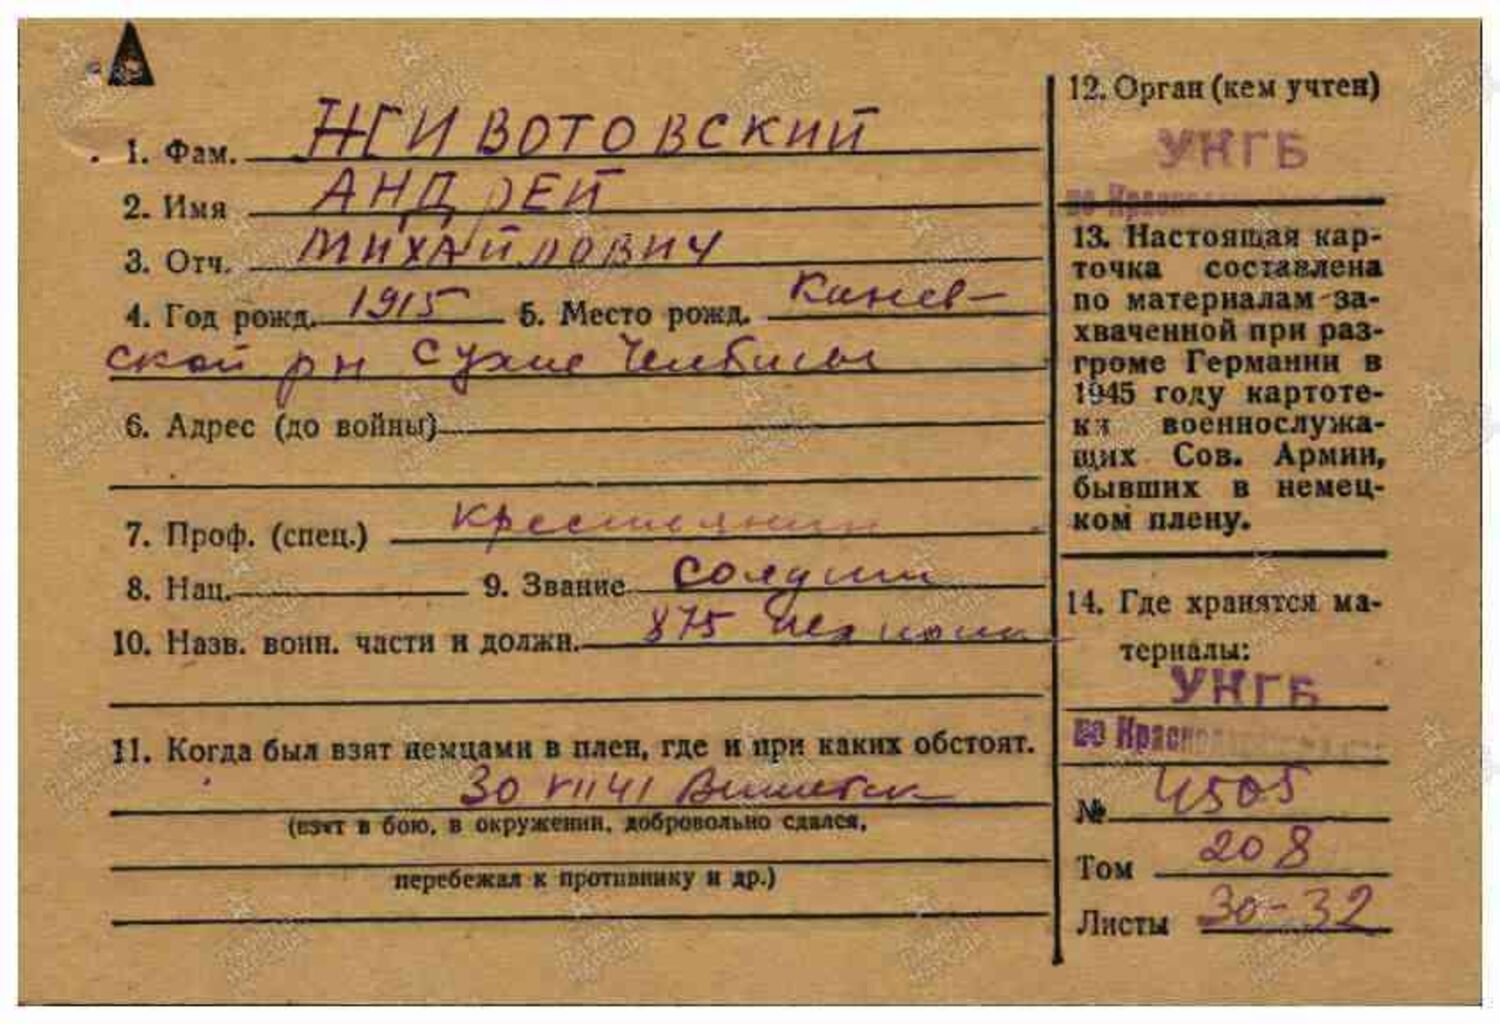 1. Фам. ЖИВОТОВСКИЙ
2. Имя АНДРЕЙ
3. Отч. МИХАЙЛОВИЧ
4. Год рожд. 1915 5. Место рожд. Канев-
ской рн Сухие Челбасы
6. Адрес (до войны)
7. Проф. (спец.) крестьянин
8. Нац. 9. Звание солдат
10. Назв. воин. части и должн. 875
11. Когда был взят немцами в плен, где и при каких обстоят.
30 VII 41 Витебск
(взят в бою, в окружении, добровольно сдался,
перебежал к противнику и др.)
12. Орган (кем учтен)
УНГБ
по Красно
13. Настоящая кар-
точка составлена
по материалам за-
хваченной при раз-
громе Германии в
1945 году картоте-
ки военнослужа-
щих Сов. Армии,
бывших в немец-
ком плену.
14. Где хранятся ма-
териалы:
УНГБ
по Краснодар
№ 4505
Том 208
Листы 30-32